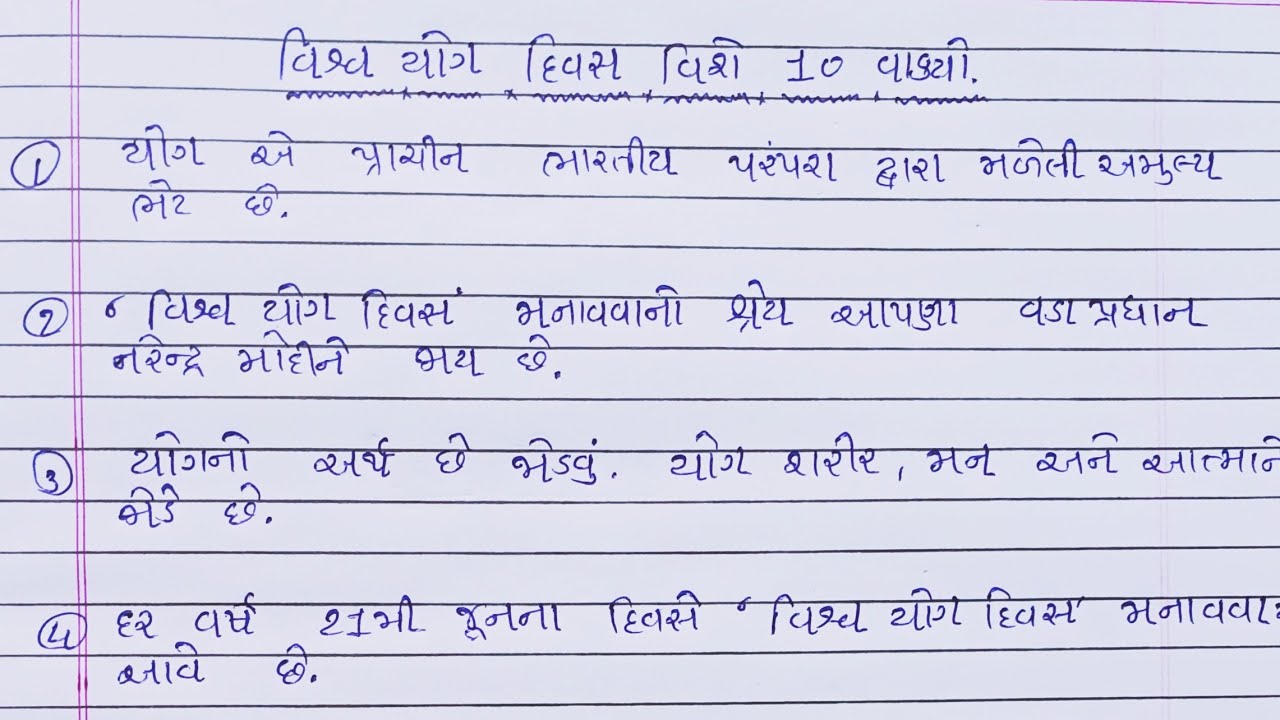 વિશ્વ યોગ દિવસ વિશે 10 વાક્યો.
① યોગ એ પ્રાચીન ભારતીય પરંપરા દ્વારા મળેલી અમુલ્ય
ભેટ છે.
② ' વિશ્વ યોગ દિવસ' મનાવવાનો શ્રેય આપણા વડાપ્રધાન
નરેન્દ્ર મોદીને જાય છે.
③ યોગનો અર્થ છે જોડવું. યોગ શરીર, મન અને આત્માને
જોડે છે.
④ દર વર્ષે 21મી જૂનના દિવસે ' વિશ્વ યોગ દિવસ' મનાવવા
આવે છે.